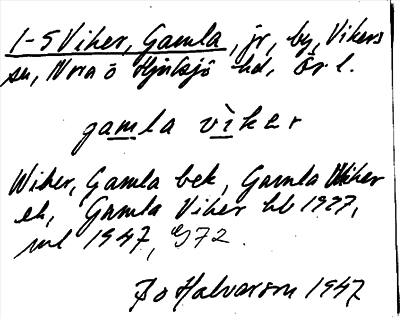 1-5 Viker, Gamla, jr, by, Vikers
sn, Nora o Hjulsjö hd, Ör l.
gamla viker
Wiker, Gamla bek, Gamla Wiker
ek, Gamla Viker hl 1927,
ml 1947, G72.
Bo Halvarson 1947